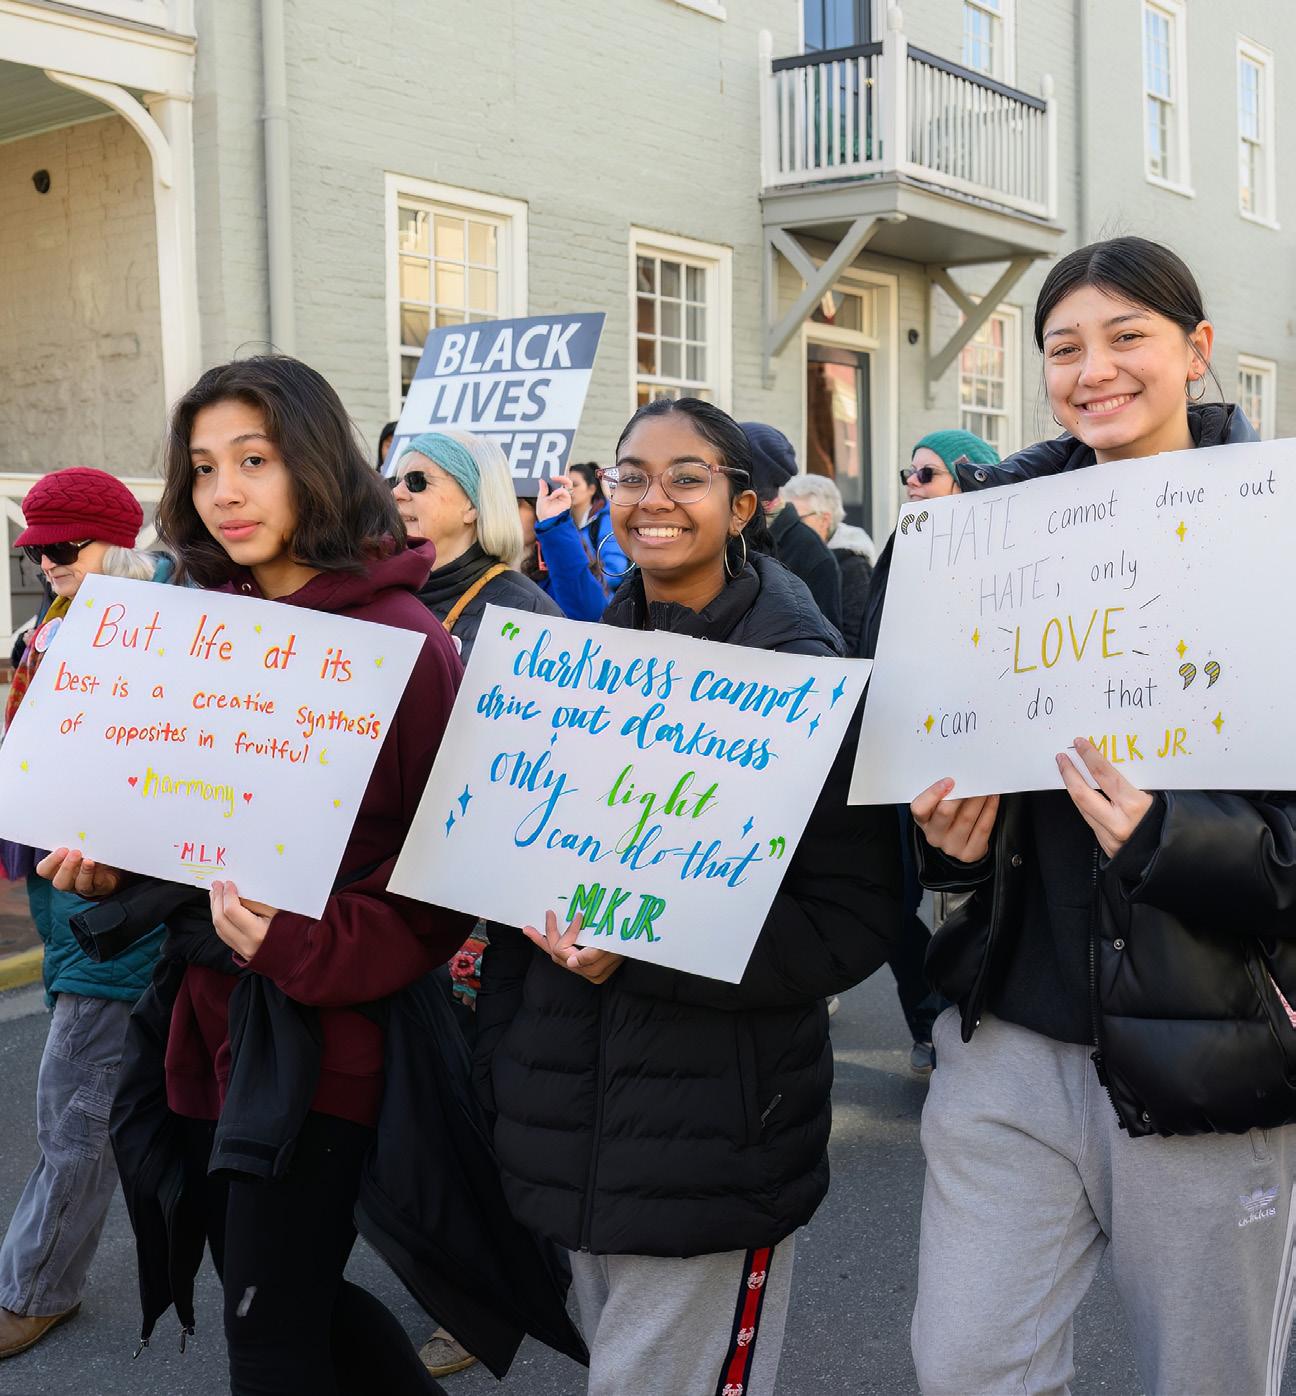 BLACK
LIVES
MATTER
But life at its
best is a creative synthesis
of opposites in fruitful
harmony
-MLK
"darkness cannot
drive out darkness
only light
can do that"
-MLK JR.
"HATE cannot drive out
HATE; only
LOVE
can do that"
-MLK JR.
adidas